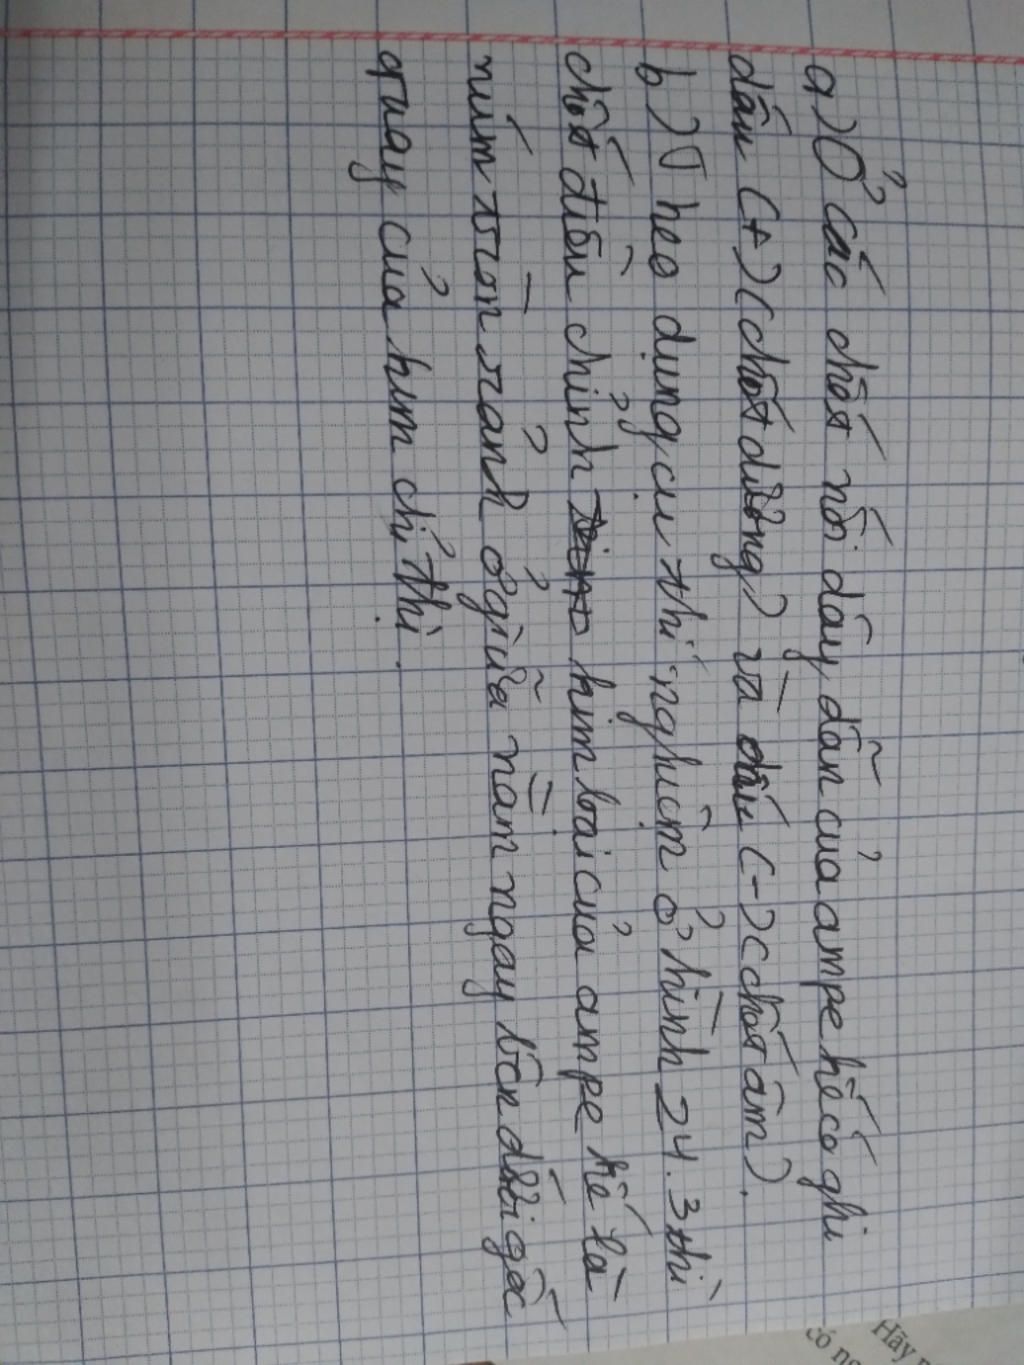 a) Ở các chốt nối dây dẫn của ampe kế có ghi
dấu (+) (chốt dương) và dấu (-) (chốt âm).
b) Theo dụng cụ thí nghiệm ở hình 24.3 thì
chốt điều chỉnh kim loại của ampe kế là
núm tròn rảnh ở giữa nằm ngay bên dưới gốc
quay của kim chỉ thị.
Hãy
có